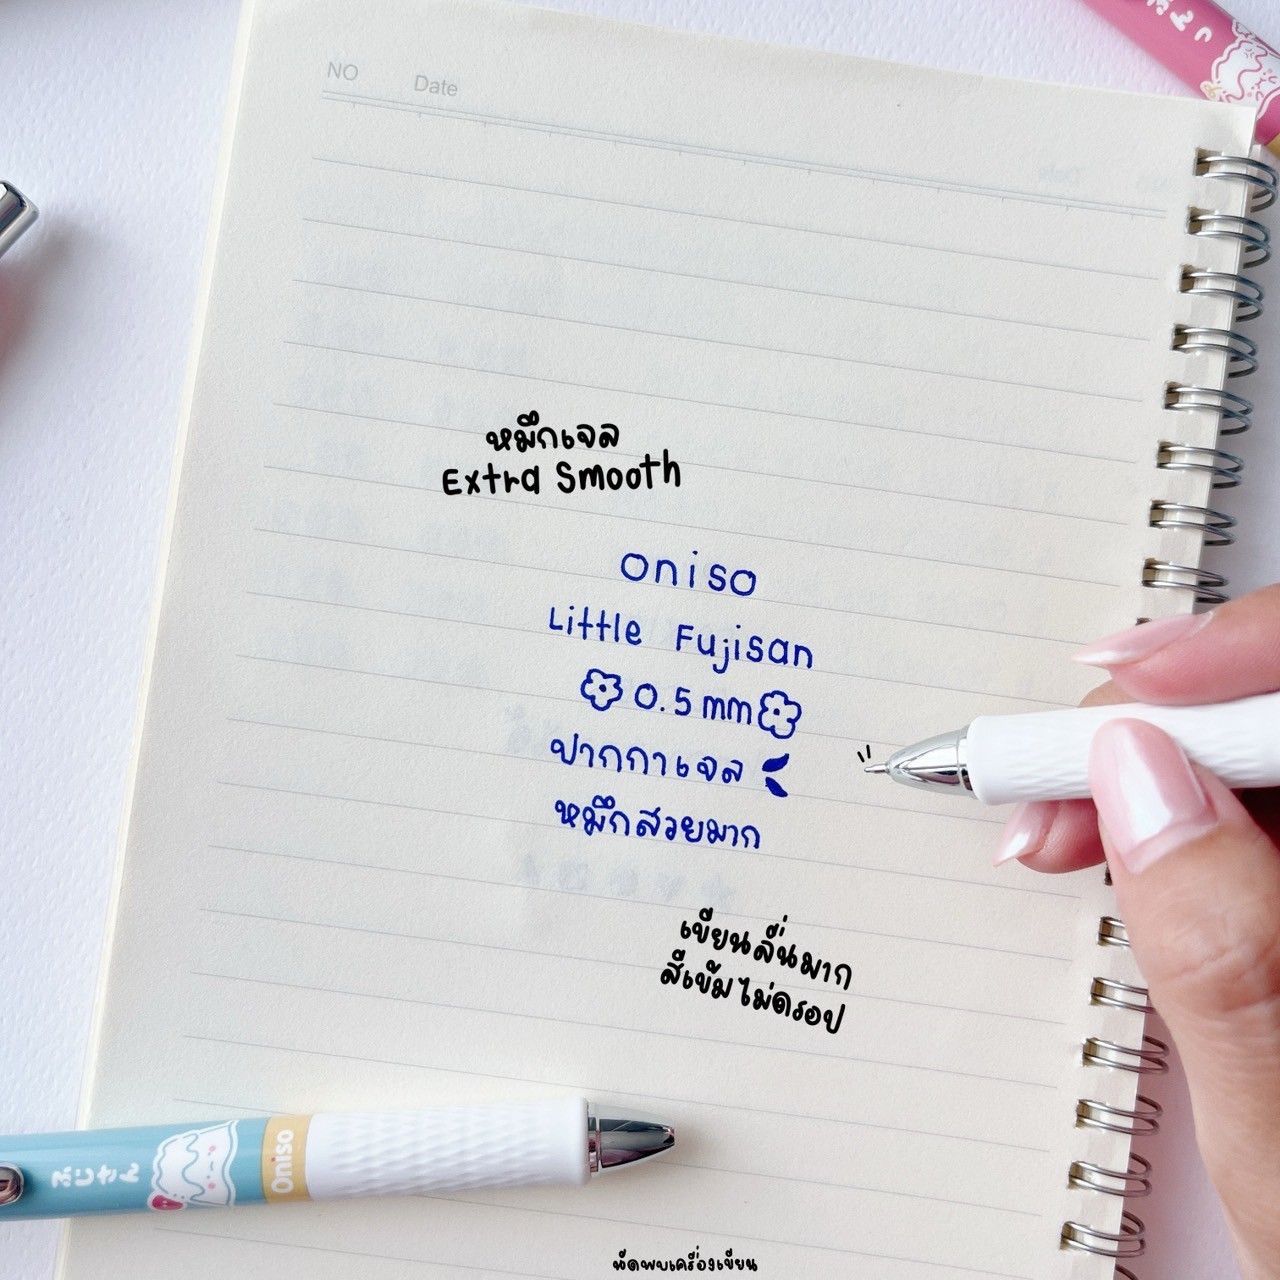 NO Date
หมึกเจล
Extra Smooth
oniso
Little Fujisan
0.5 mm
ปากกาเจล
หมึกสวยมาก
เขียนลื่นมาก
สีเข้มไม่ดรอป
ふじさん
Oniso
นัดพบเครื่องเขียน